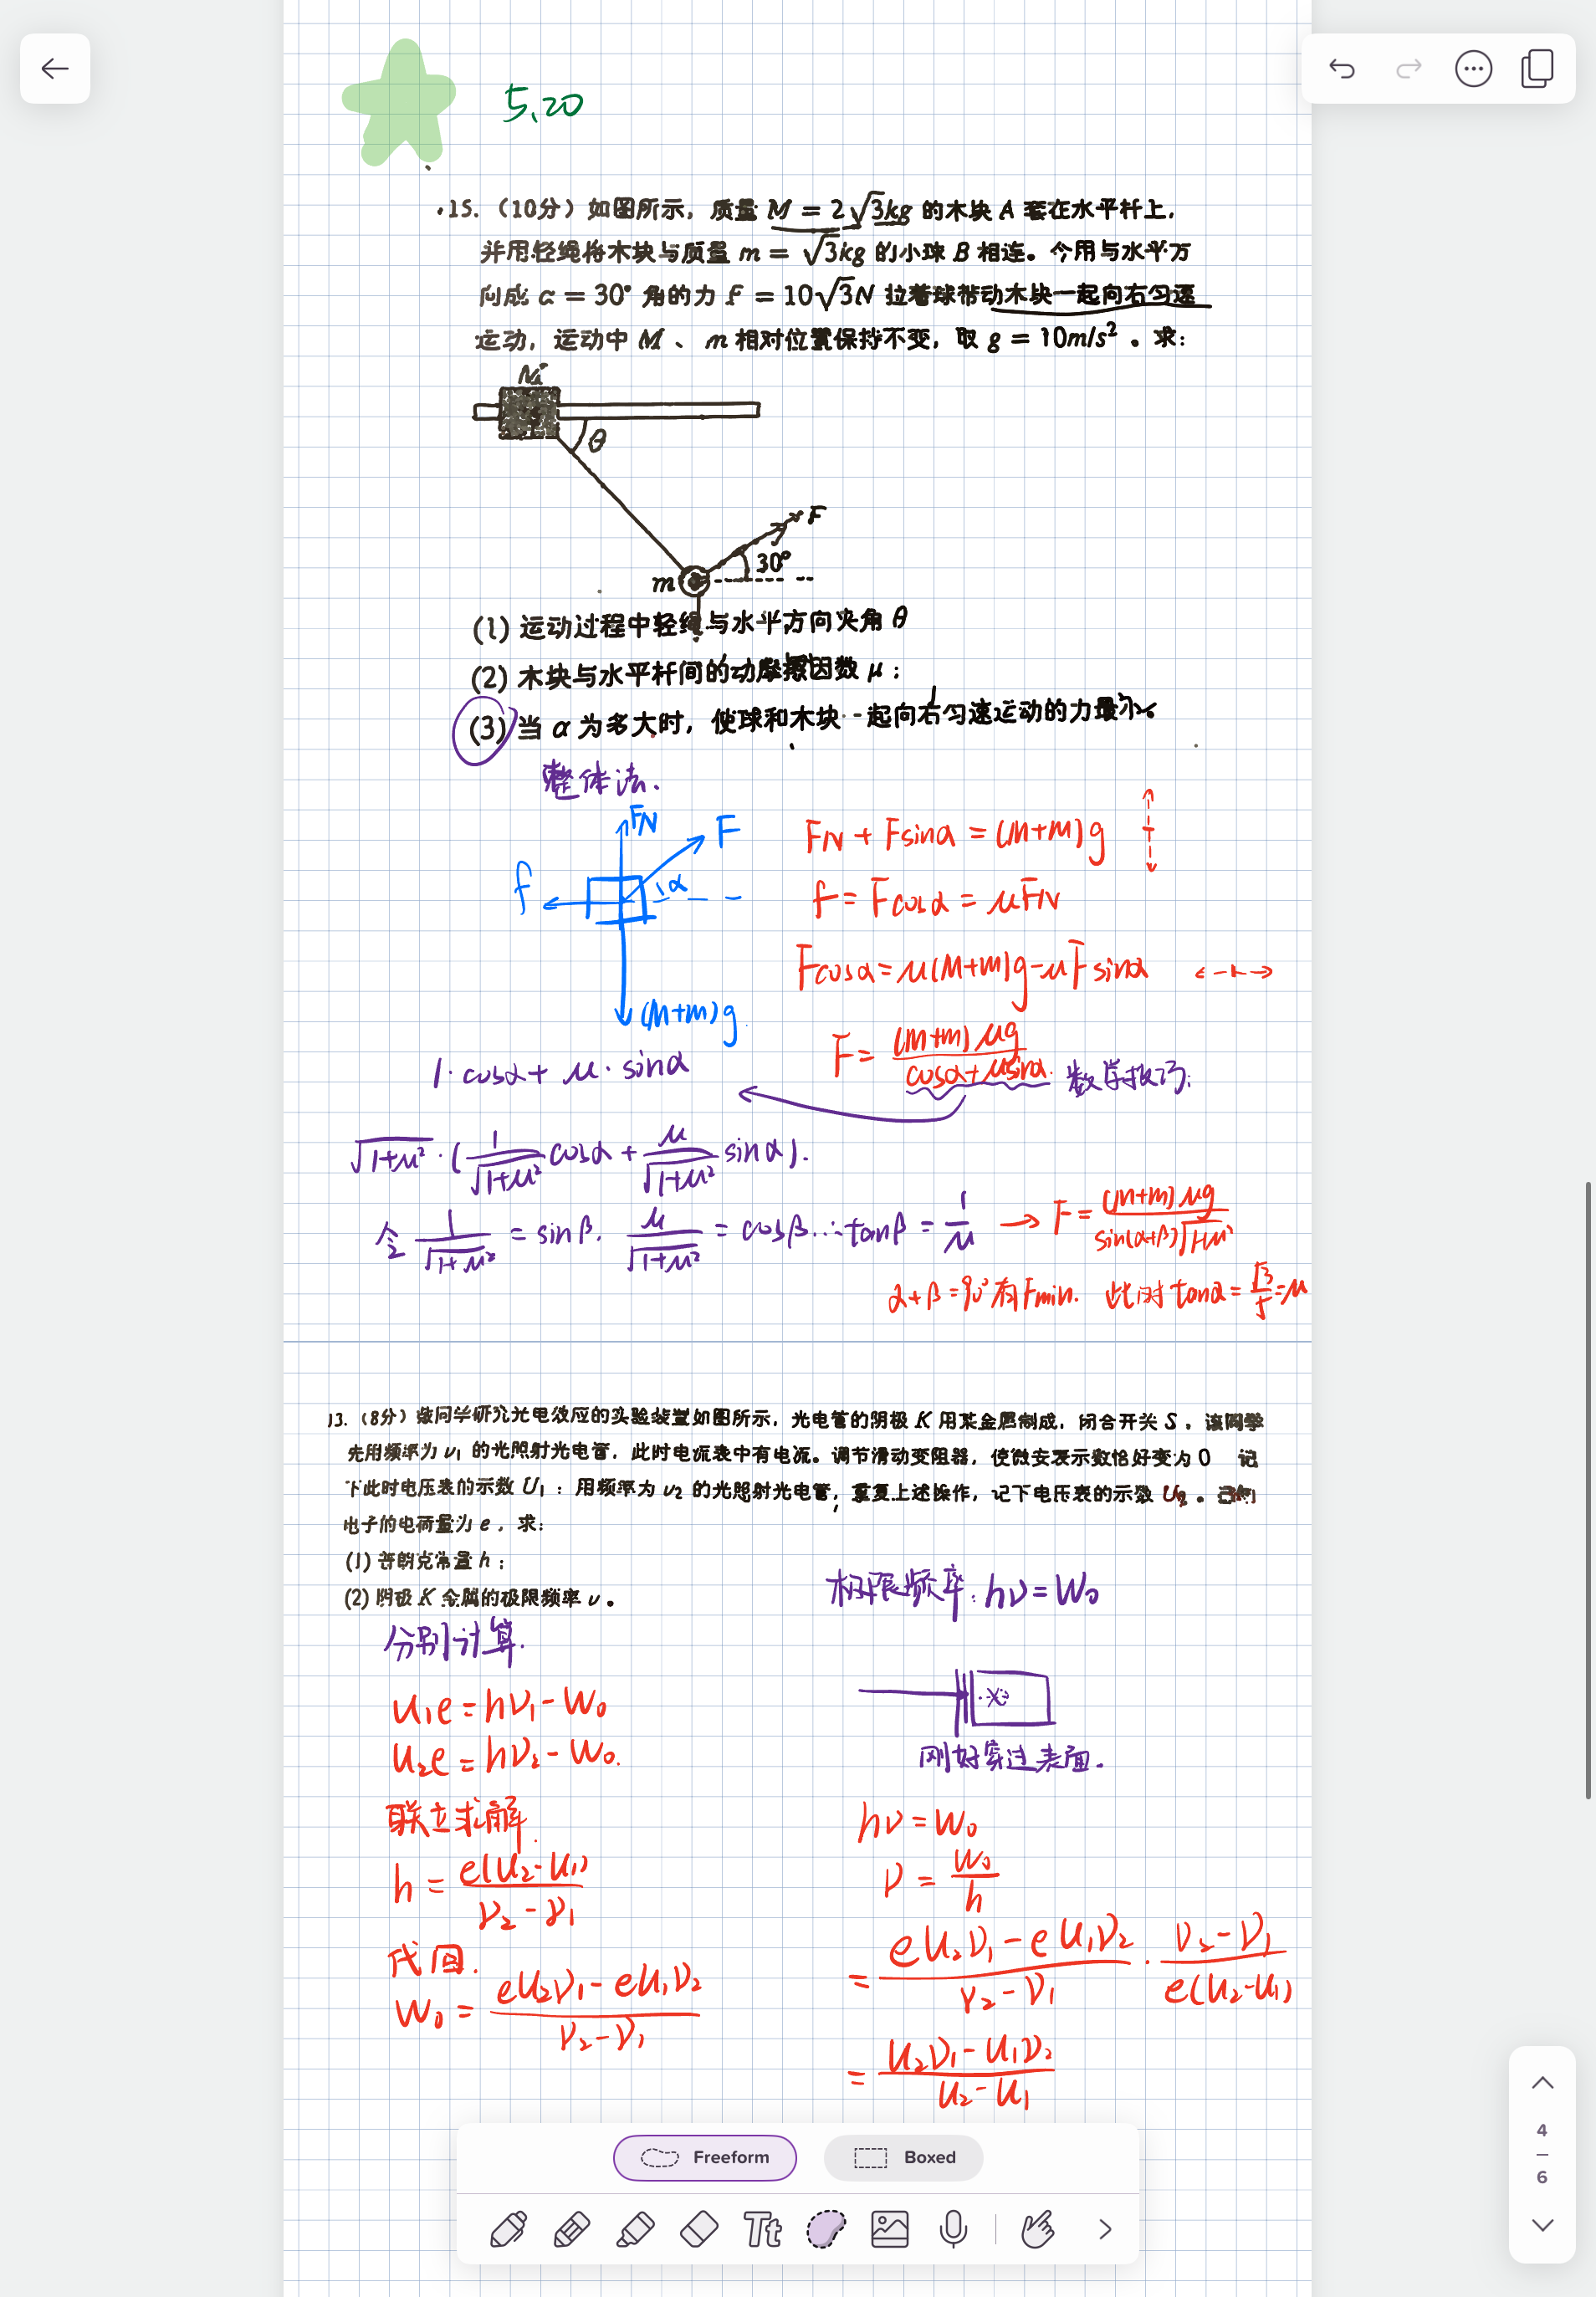 5.20
15. （10分）如图所示，质量 M = 2√3kg 的木块 A 套在水平杆上，
并用轻绳将木块与质量 m = √3kg 的小球 B 相连。今用与水平方
向成 α = 30° 角的力 F = 10√3N 拉着球带动木块一起向右匀速
运动，运动中 M 、 m 相对位置保持不变，取 g = 10m/s² 。求：
θ
F
30°
m
(1) 运动过程中轻绳与水平方向夹角 θ
(2) 木块与水平杆间的动摩擦因数 μ：
(3) 当 α 为多大时，使球和木块一起向右匀速运动的力最小
整体法.
FN
F
f
α
(M+m)g
FN + Fsinα = (M+m)g
f = Fcosα = μFN
Fcosα = μ(M+m)g-μFsinα
F = (M+m)μg / cosα+μsinα
数学技巧:
1·cosα + μ·sinα
√1+μ² · (1/√1+μ² cosα + μ/√1+μ² sinα).
令 1/√1+μ² = sinβ. μ/√1+μ² = cosβ ∴tanβ = 1/μ → F = (M+m)μg / sin(α+β)√1+μ²
α+β=90°有Fmin. 此时tanα = √3/5 = μ
13.（8分）做同学研究光电效应的实验装置如图所示，光电管的阴极 K 用某金属制成，闭合开关 S，该同学
先用频率为 ν₁ 的光照射光电管，此时电流表中有电流。调节滑动变阻器，使微安表示数恰好变为 0 记
下此时电压表的示数 U₁；用频率为 ν₂ 的光照射光电管，重复上述操作，记下电压表的示数 U₂。已知
电子的电荷量为 e，求：
(1) 普朗克常量 h；
(2) 阴极 K 金属的极限频率 ν。
极限频率: hν = W₀
分别计算.
U₁e = hν₁ - W₀
U₂e = hν₂ - W₀.
刚好穿过表面.
联立求解.
h = e(U₂-U₁) / ν₂-ν₁
代回.
W₀ = eU₂ν₁ - eU₁ν₂ / ν₂-ν₁
hν = W₀
ν = W₀ / h
= eU₂ν₁ - eU₁ν₂ / ν₂-ν₁ · ν₂-ν₁ / e(U₂-U₁)
= U₂ν₁ - U₁ν₂ / U₂-U₁
Freeform
Boxed
Tt
4
6